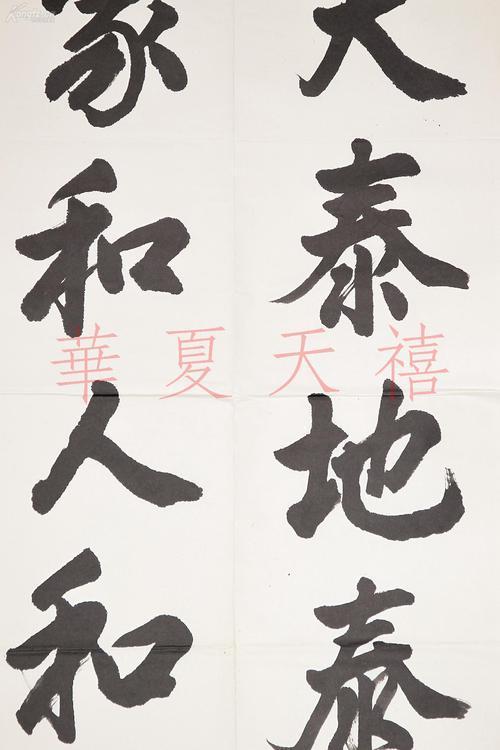 天泰地泰
家和人和
華夏天禧